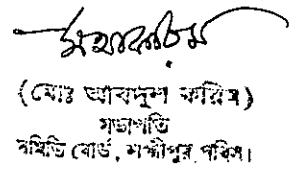 (মোঃ আবদুল করিম)
সভাপতি
সমিতি বোর্ড, লক্ষীপুর পবিস।